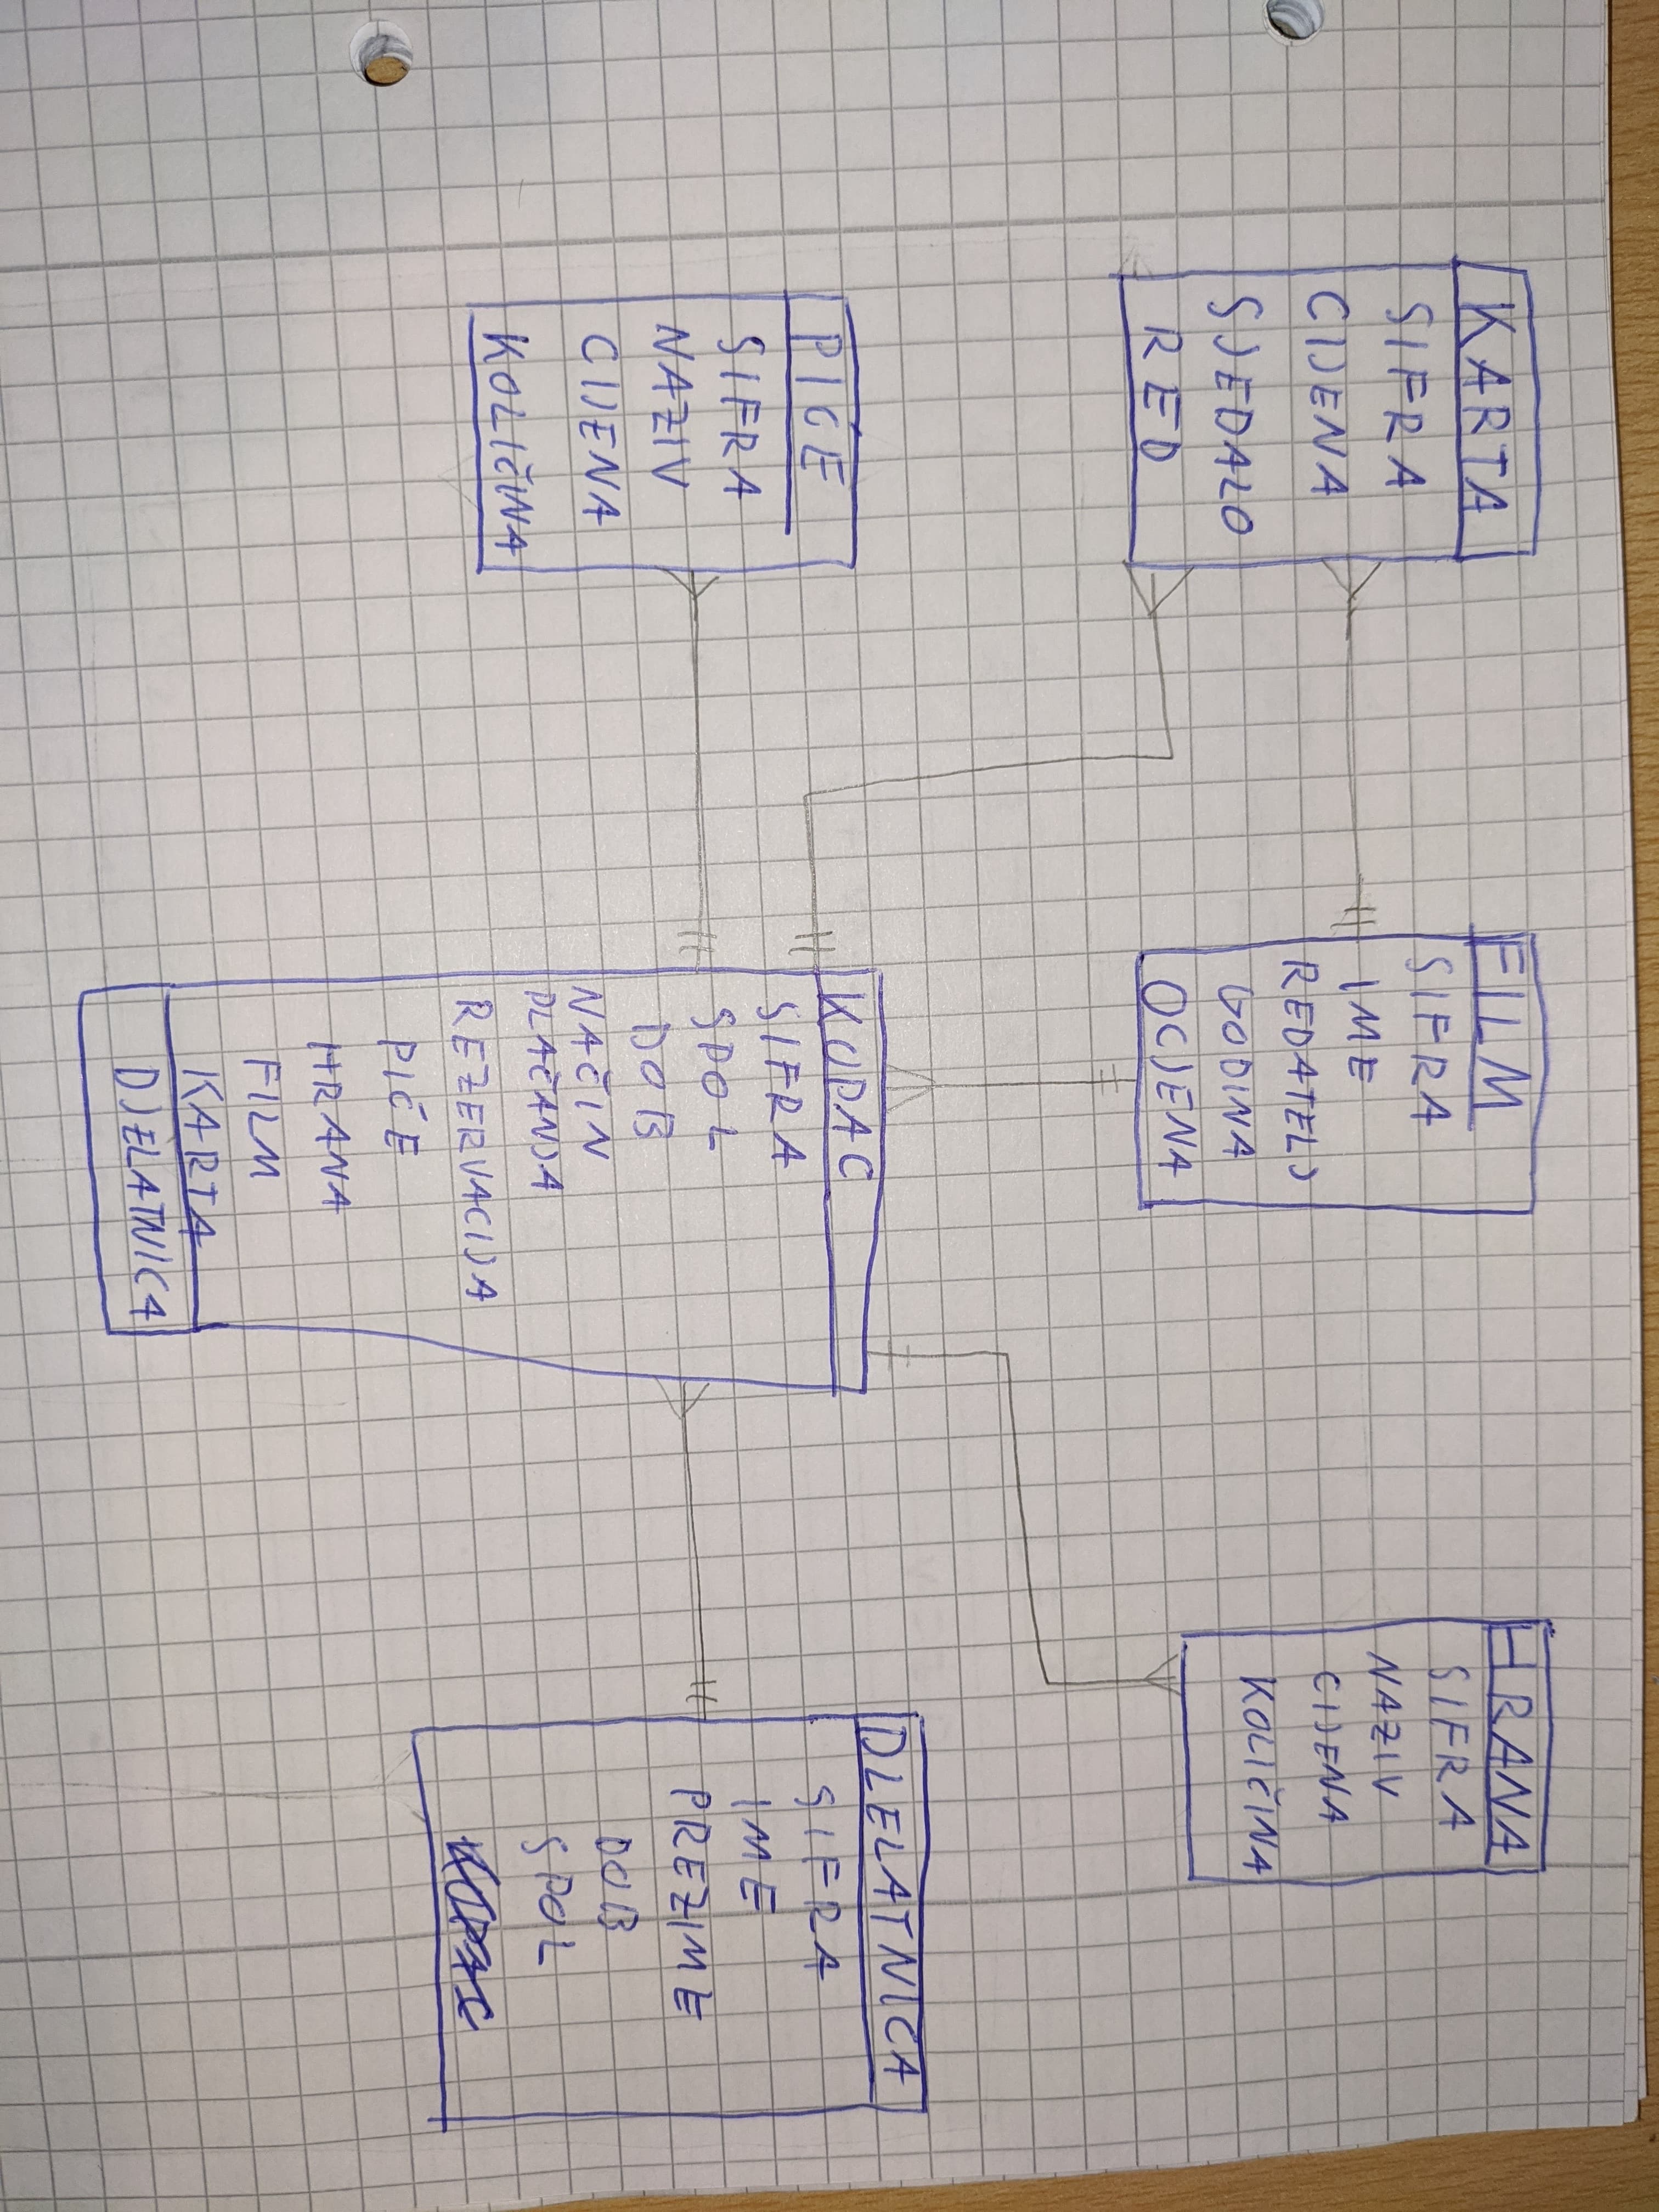 KARTA
SIFRA
CIJENA
SJEDALO
RED
FILM
SIFRA
IME
REDATELJ
GODINA
OCJENA
HRANA
SIFRA
NAZIV
CIJENA
KOLIČINA
PIĆE
SIFRA
NAZIV
CIJENA
KOLIČINA
KUPAC
SIFRA
SPOL
DOB
NAČIN
PLAČANJA
REZERVACIJA
PIĆE
HRANA
FILM
KARTA
DJELATNICA
DLELATNICA
SIFRA
IME
PREZIME
DOB
SPOL